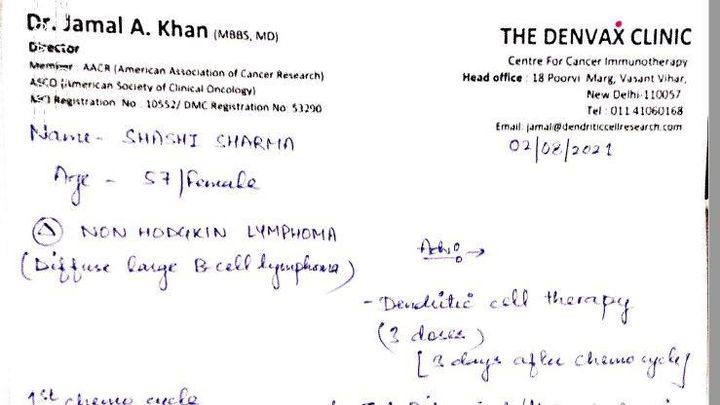 Dr. Jamal A. Khan (MBBS, MD)
Director
Member : AACR (American Association of Cancer Research)
ASCO (American Society of Clinical Oncology)
Registration No : 10552/ DMC Registration No: 53290
THE DENVAX CLINIC
Centre For Cancer Immunotherapy
Head office : 18 Poorvi Marg, Vasant Vihar,
New Delhi-110057
Tel : 011 41060168
Email: jamal@dendriticcellresearch.com
02/08/2021
Name - SHASHI SHARMA
Age - 57/Female
Δ NON HODGKIN LYMPHOMA
(Diffuse large B cell lymphoma)
Adv: →
- Dendritic cell therapy
(3 doses)
[3 days after chemo cycle]
1st chemo cycle